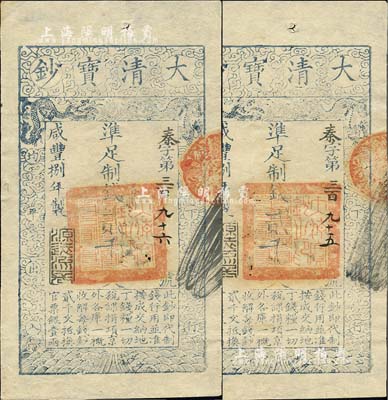 大清寶鈔
秦字第三百九十六
準足制錢貳千文
咸豐捌年製
此鈔即代制
錢行用並准
按成交納地
丁錢糧一切
稅課捐項京
外各庫一概
收解每錢鈔
貳千文抵換
官票銀壹兩
大清寶鈔
秦字第三百九十五
準足制錢貳千文
咸豐捌年製
此鈔即代制
錢行用並准
按成交納地
丁錢糧一切
稅課捐項京
外各庫一概
收解每錢鈔
貳千文抵換
官票銀壹兩
上海陽明拍賣
上海陽明拍賣